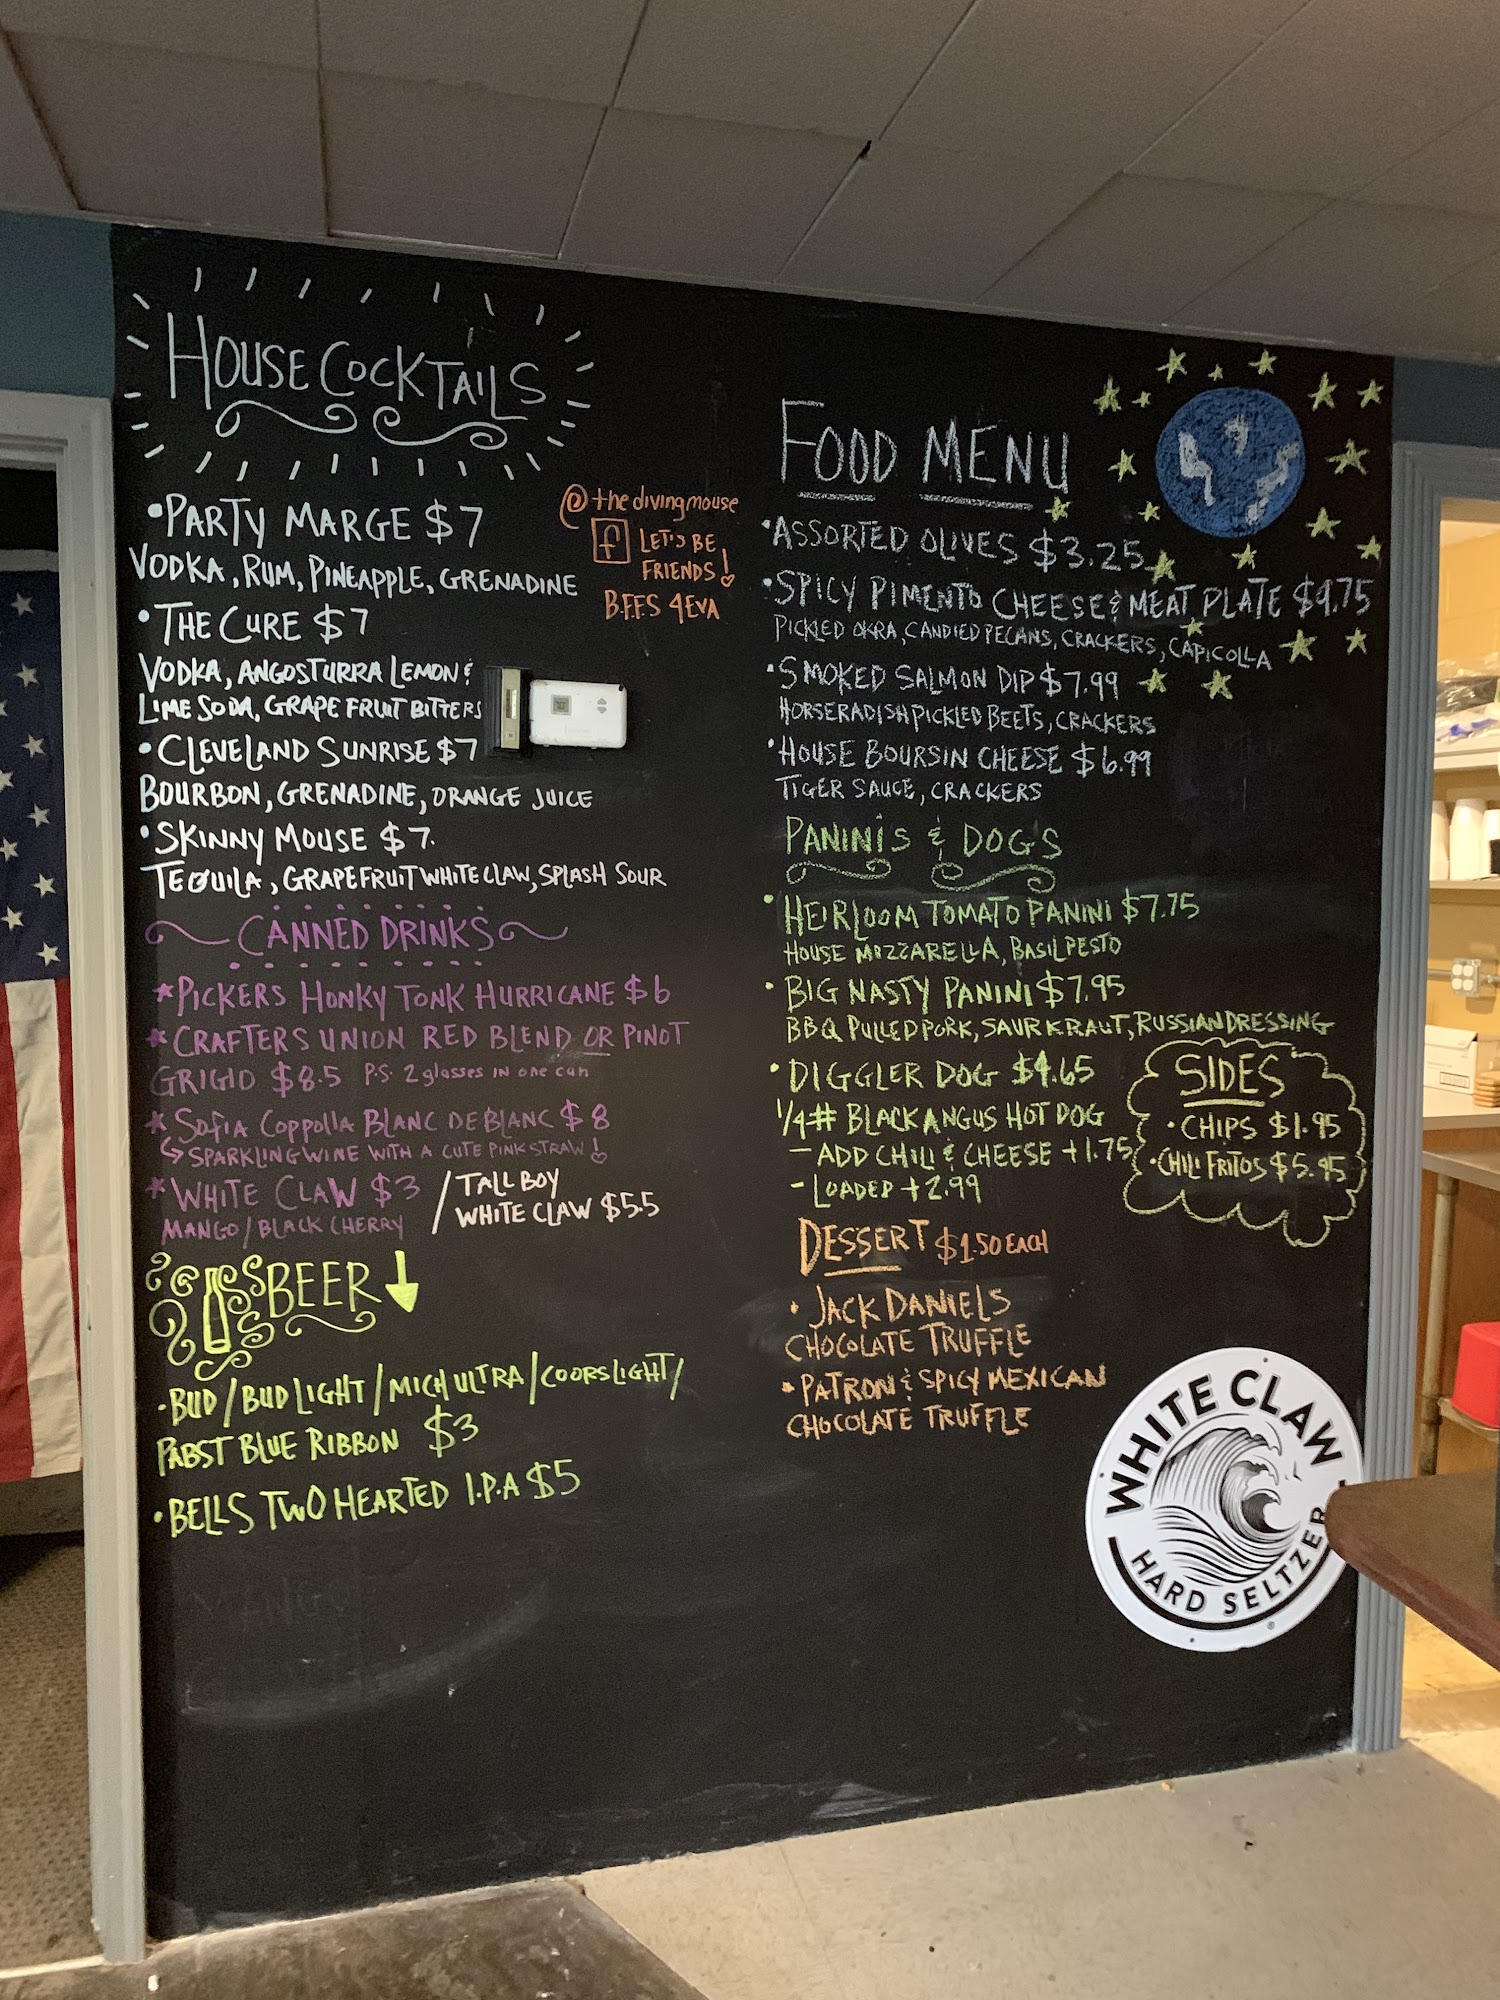 HOUSE COCKTAILS
• PARTY MARGE $7
VODKA, RUM, PINEAPPLE, GRENADINE
• THE CURE $7
VODKA, ANGOSTURRA LEMON &
LIME SODA, GRAPEFRUIT BITTERS
• CLEVELAND SUNRISE $7
BOURBON, GRENADINE, ORANGE JUICE
• SKINNY MOUSE $7.
TEQUILA, GRAPEFRUIT WHITE CLAW, SPLASH SOUR
@thedivingmouse
f LET'S BE
FRIENDS!
B.F.F.S 4EVA
CANNED DRINKS
* PICKERS HONKY TONK HURRICANE $6
* CRAFTERS UNION RED BLEND OR PINOT
GRIGIO $8.5 P.S. 2 glasses IN one can
* SOFIA COPPOLLA BLANC DE BLANC $8
SPARKLING WINE WITH A CUTE PINK STRAW!
* WHITE CLAW $3 / TALL BOY
WHITE CLAW $5.5
MANGO/BLACK CHERRY
BEER
• BUD/BUD LIGHT/MICH ULTRA/COORS LIGHT/
PABST BLUE RIBBON $3
• BELLS TWO HEARTED I.P.A $5
MANGO
FOOD MENU
• ASSORTED OLIVES $3.25
• SPICY PIMENTO CHEESE & MEAT PLATE $9.75
PICKLED OKRA, CANDIED PECANS, CRACKERS, CAPICOLLA
• SMOKED SALMON DIP $7.99
HORSERADISH PICKLED BEETS, CRACKERS
• HOUSE BOURSIN CHEESE $6.99
TIGER SAUCE, CRACKERS
PANINI'S & DOGS
• HEIRLOOM TOMATO PANINI $7.75
HOUSE MOZZARELLA, BASIL PESTO
• BIG NASTY PANINI $7.95
BBQ PULLED PORK, SAURKRAUT, RUSSIAN DRESSING
• DIGGLER DOG $4.65
1/4# BLACK ANGUS HOT DOG
- ADD CHILI & CHEESE +1.75
- LOADED +2.99
SIDES
• CHIPS $1.95
• CHILI FRITOS $5.95
DESSERT $1.50 EACH
• JACK DANIELS
CHOCOLATE TRUFFLE
• PATRON & SPICY MEXICAN
CHOCOLATE TRUFFLE
WHITE CLAW
HARD SELTZER